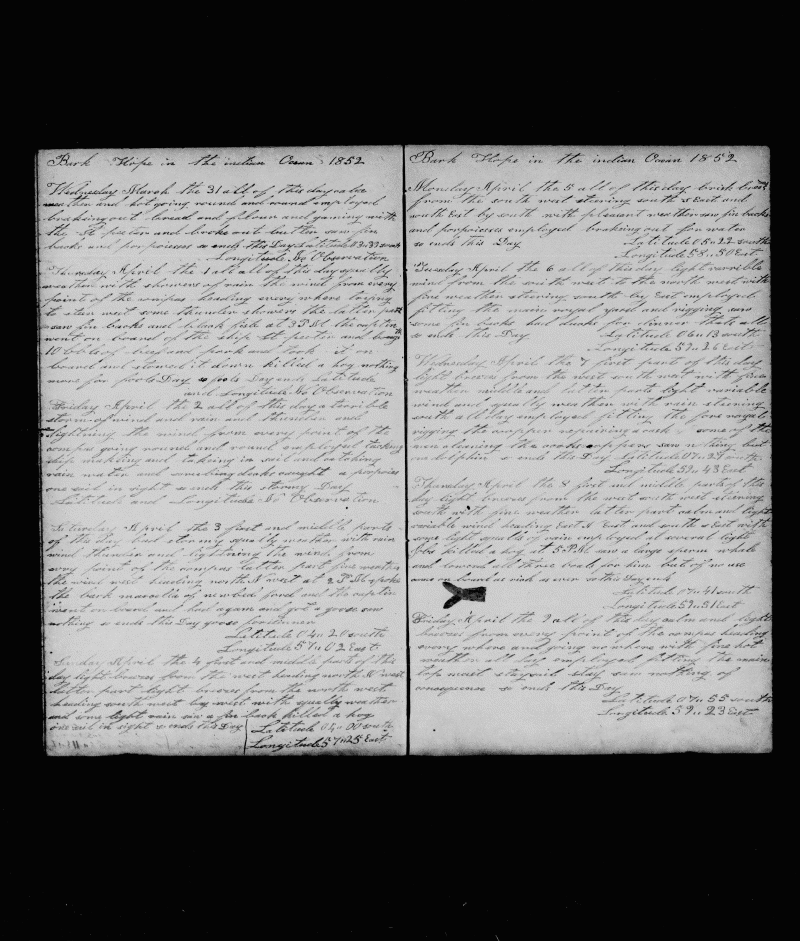 Bark Hope in the indian Ocean 1852
Wednesday March the 31 all of this day calm
weather and hot going round and round employed
breaking out bread and flour and gaming with
the St peter and broke out butter saw fin
backs and porpoises so ends this Day Latitude 03..33 south
Longitude No Observation
Thursday April the 1 all of this day squally
weather with showers of rain the wind from every
point of the compas heading every where trying
to stem west some thunder showers the latter part
saw fin backs and black fish at 3 P.M. the captin
went on board of the ship St peter and
10 bbls of beef and pork and took it on
board and stowed it down killed a hog nothing
more for fools Day so fools Day ends Latitude
and Longitude No Observation
Friday April the 2 all of this day a terrible
storm of wind and rain and thunder and
lightning the wind from every point of the
compas going round and round employed tacking
ship making and taking in sail and catching
rain water and sweeling decks caught a propoise
one sail in sight so ends this stormy Day
Latitude and Longitude No Observation
Saturday April the 3 first and middle parts
of the day bad stormy squally weather with rain
wind thunder and lightning the wind from
evry point of the compas latter part fine weather
the wind west heading north N west at 2 P.M. spoke
the bark marcella of newbed ford and the captin
went on board and had agan and got a goose saw
nothing so ends this Day goose for dinner
Latitude 04..20 south
Longitude 57..02 East
Sunday April the 4 first and middle parts of this
day light brezes from the west heading north N west
latter part light brezes from the north west
heading south west by west with squally weather
and some light rain saw a fin back killed a hog
one sail in sight so ends this Day
Latitude 04..00 south
Longitude 57..25 East
Bark Hope in the indian Ocean 1852
Monday April the 5 all of this day brisk brezes
from the south west stering south s East and
south East by south with plesent weather saw fin backs
and porpoieces employed breaking out for water
so ends this Day
Latitude 05..22 south
Longitude 58..50 East
Tuesday April the 6 all of this day light varible
wind from the south west to the north west with
fine weather stering south by East employed
fitting the main royal yard and rigging saw
some fin backs had ducks for dinner thats all
so ends this Day
Latitude 06..13 south
Longitude 59..26 East
Wednesday April the 7 first part of this day
light brezes from the west south west with fine
weather middle and latter parts light variable
wind and squally weather with rain stering
south all day employed fitting the fore royal
rigging the cuppers repairing a cask some of the
men cleaning the cooks coppers saw nthing but
a dolphin so ends this Day Latitude 07..29 south
Longitude 59..43 East
Thursday April the 8 first and middle parts of this
day light brezes from the west south west stering
south with fine weather latter part calm and light
varible wind heading East N East and south s East with
some light squalls of rain employed at several light
jobs killed a hog at 5 P.M. saw a large sperm whale
and lowered all three boats for him but of no use
came on board as rich as ever so this Day ends
Latitude 07..41 south
Longitude 59..31 East
Friday April the 9 all of this day calm and light
brezes from every point of the compas heading
every where and going no where with fine hot
weather all day employed fitting the main
top mast stay sail stay saw nothing of
consequence so ends this Day
Latitude 07..55 south
Longitude 59..23 East